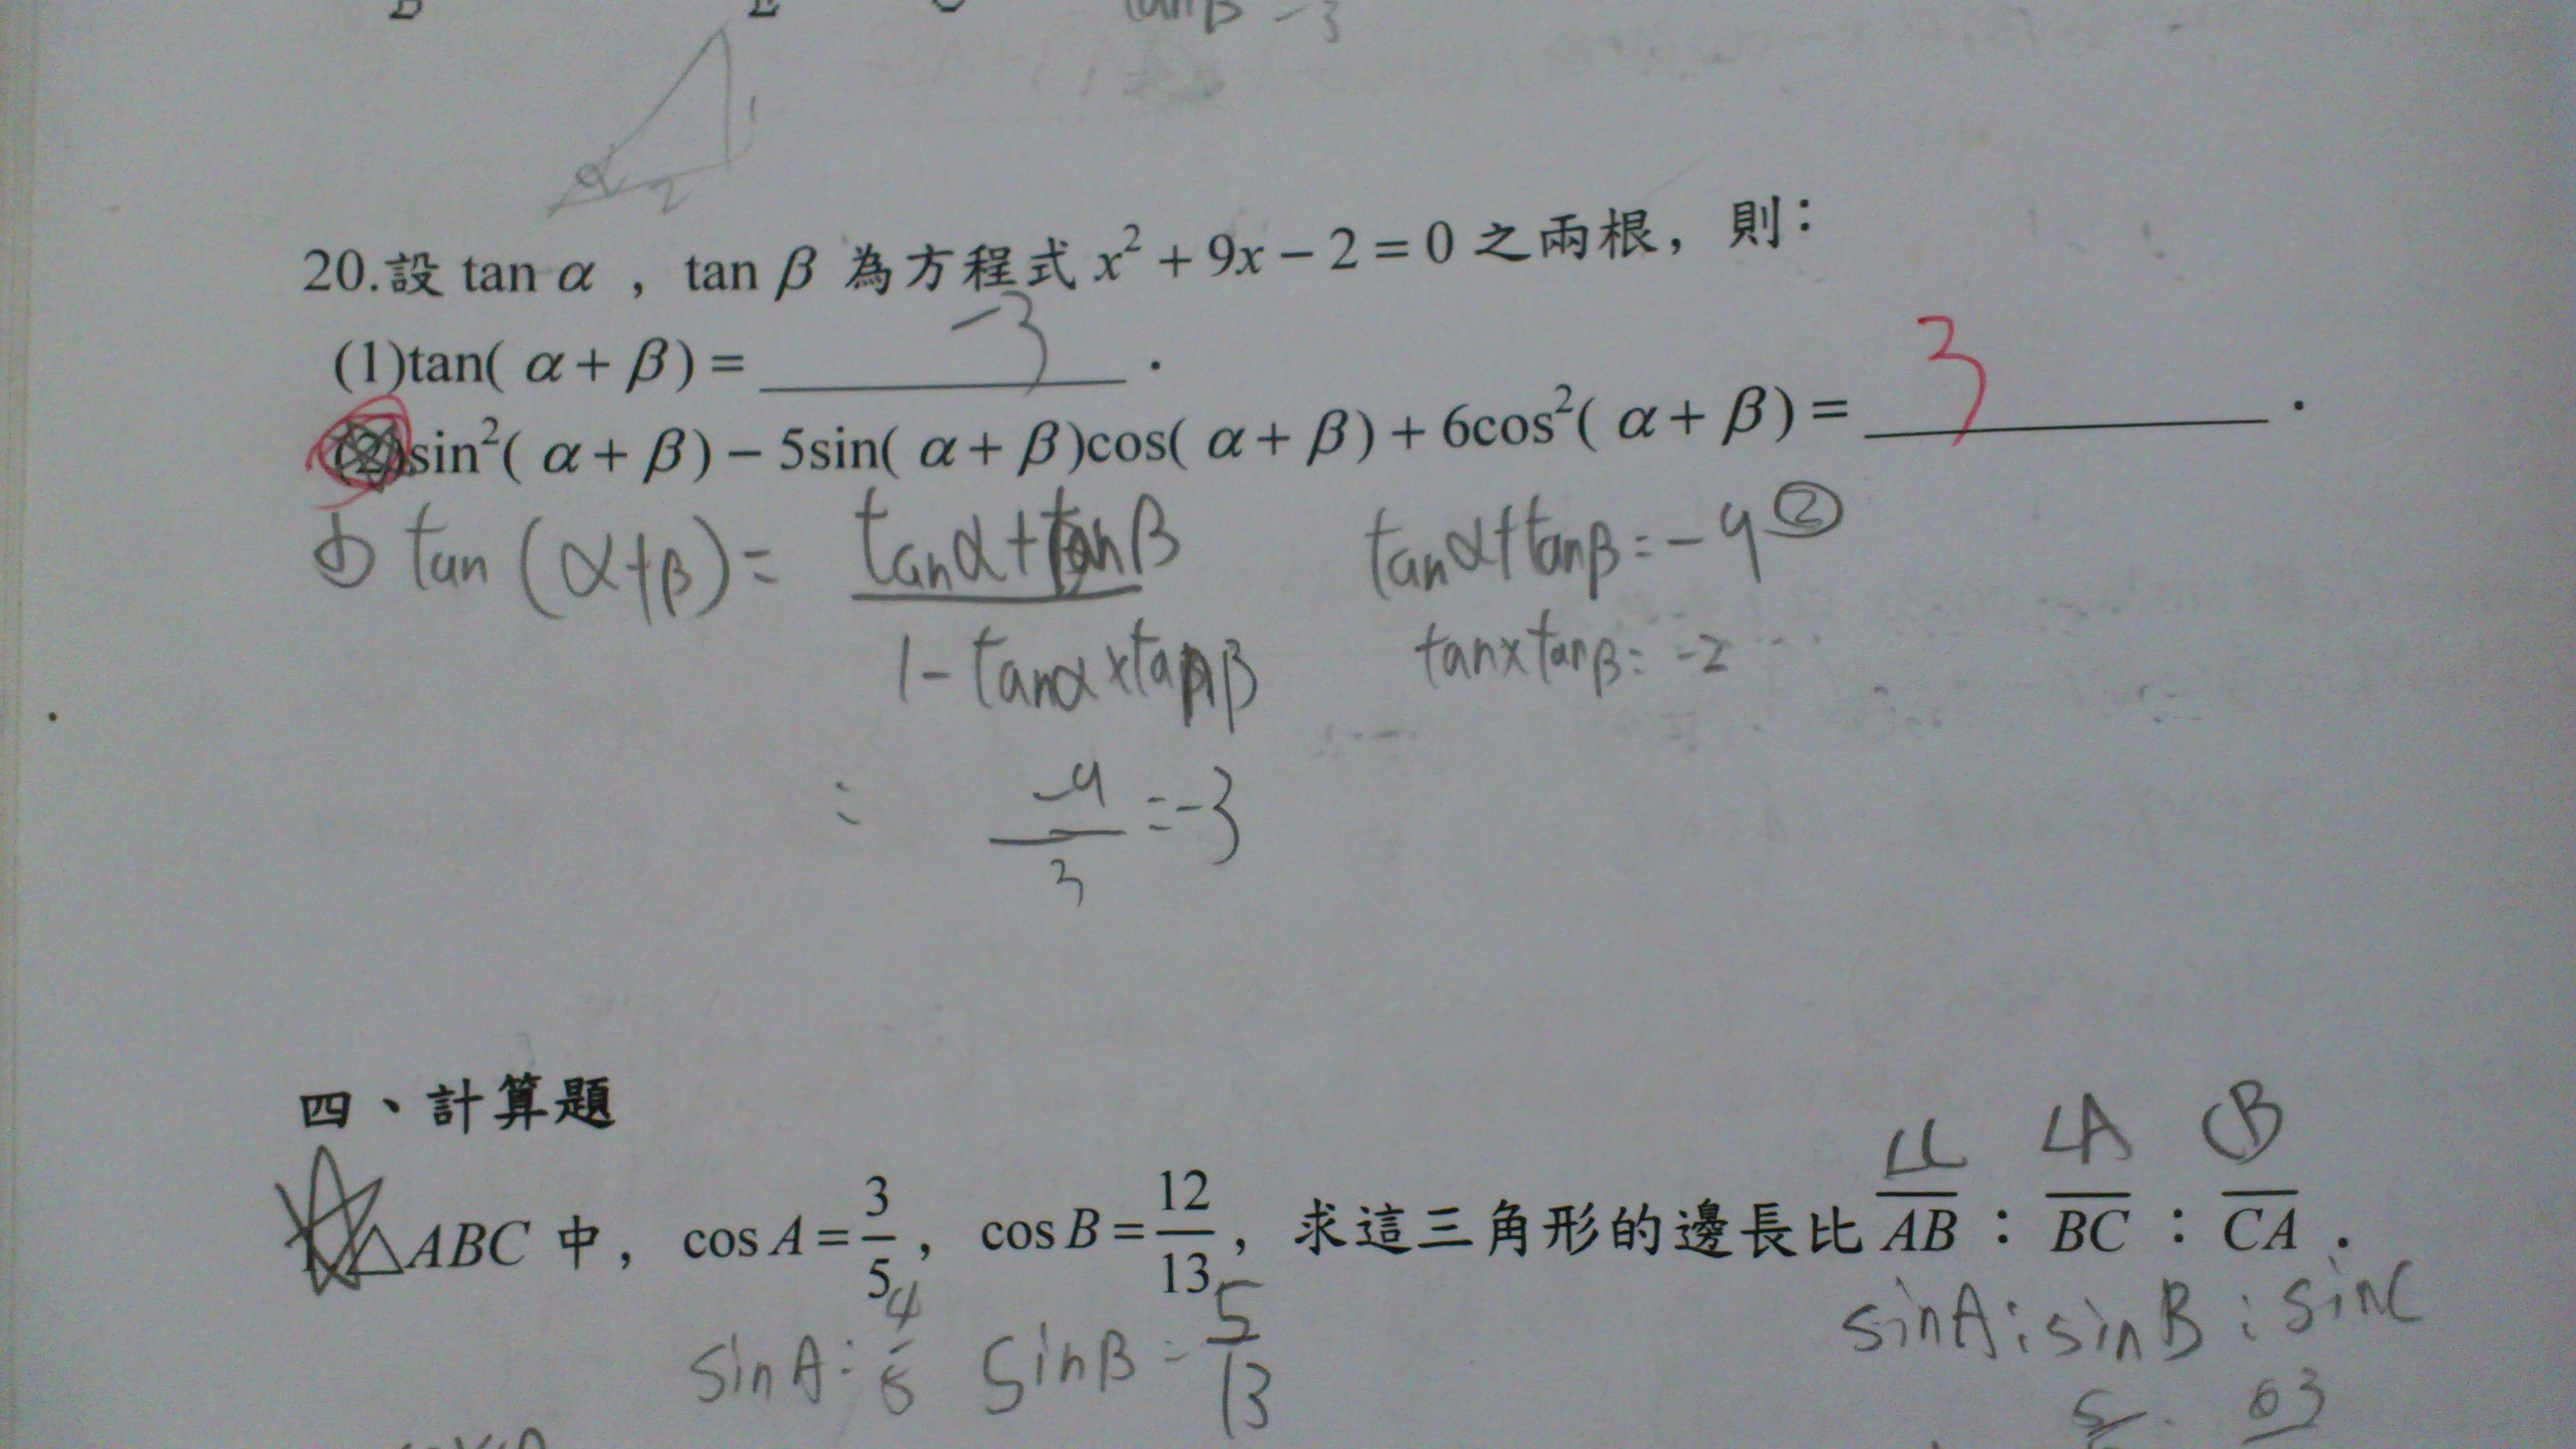 tanβ -3
1
α 2
20.設 tan α ， tan β 為方程式 x² + 9x − 2 = 0 之兩根，則：
(1)tan( α + β ) = -3 .
(2)sin²( α + β ) − 5sin( α + β )cos( α + β ) + 6cos²( α + β ) = 3 .
① tan (α+β) = tanα+tanβ / 1-tanα×tanβ
tanα+tanβ=-9 ②
tan×tanβ=-2
= -9/3 =-3
四、計算題
△ABC 中，cos A = 3/5，cos B = 12/13，求這三角形的邊長比 AB：BC：CA .
∠C ∠A ∠B
sinA = 4/5 sinB = 5/13
sinA:sinB:sinC
5 63